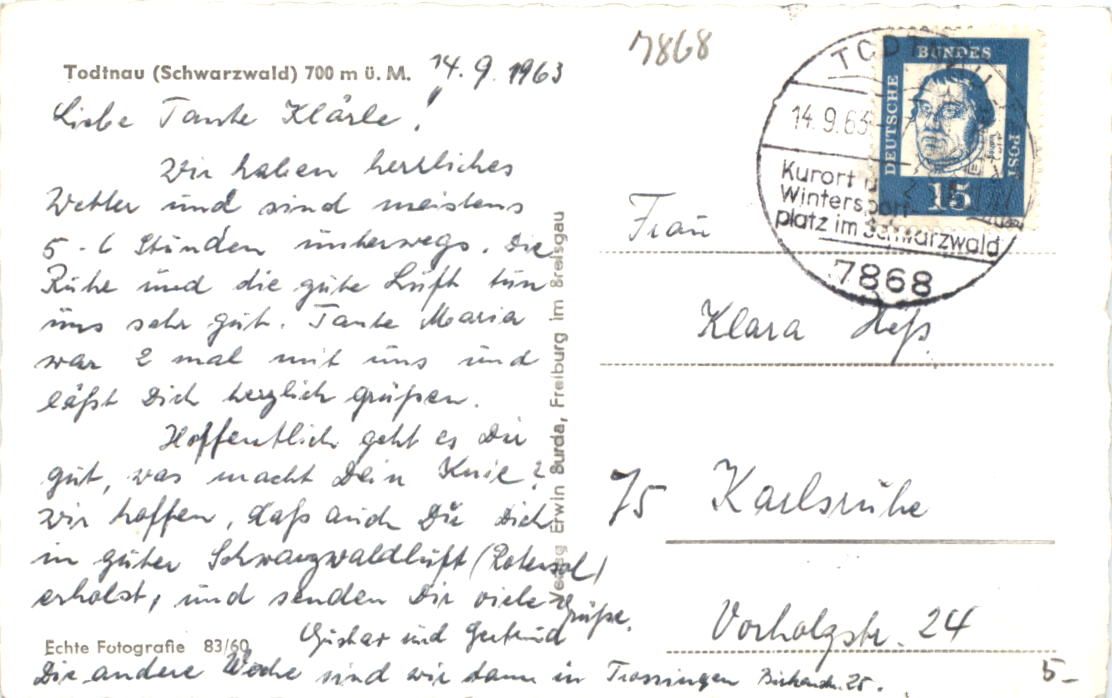 Todtnau (Schwarzwald) 700 m ü. M.
14.9.1963
Liebe Tante Klärle,
Wir haben herrliches
Wetter und sind meistens
5-6 Stunden unterwegs. Die
Ruhe und die gute Luft tun
uns sehr gut. Tante Maria
war 2 mal mit uns und
läßt Dich herzlich grüßen.
Hoffentlich geht es Dir
gut, was macht Dein Knie?
Wir hoffen, daß auch Du Dich
in guter Schwarzwaldluft (Rotensol)
erholst, und senden Dir viele Grüße.
Gustav und Gertrud
Echte Fotografie 83/60
Die andere Woche sind wir dann in Trossingen 25.
Verlag Erwin Burda, Freiburg im Breisgau
7868
TODTNAU
14.9.63
Kurort u.
Wintersport
platz im Schwarzwald
7868
DEUTSCHE
BUNDES
POST
15
Frau
Klara Heß
75 Karlsruhe
Vorholzstr. 24
5-